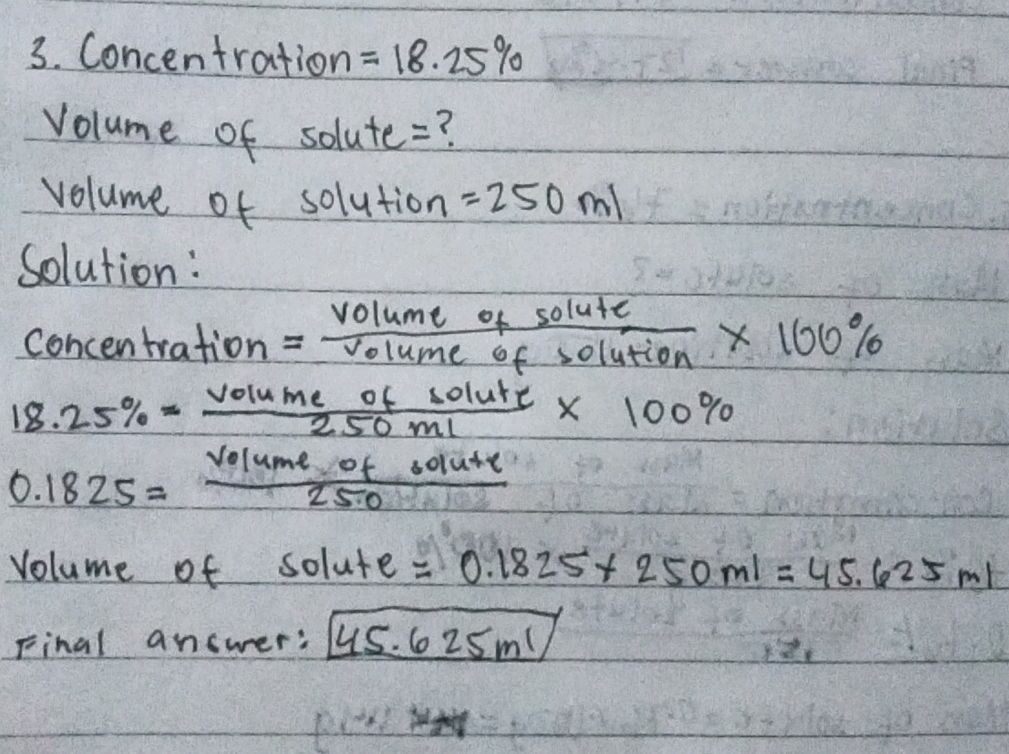 3. Concentration = 18.25%
Volume of solute = ?
Volume of solution = 250 ml
Solution:
Concentration = volume of solute / volume of solution × 100%
18.25% = volume of solute / 250 ml × 100%
0.1825 = volume of solute / 250
Volume of solute = 0.1825 × 250 ml = 45.625 ml
Final answer: 45.625 ml